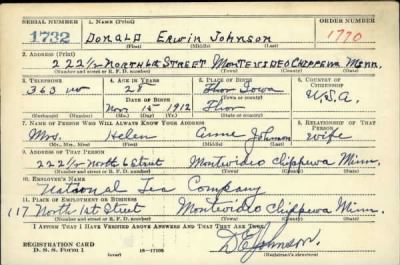 SERIAL NUMBER 1. NAME (Print) ORDER NUMBER
1732 Donald Erwin Johnson 1770
(First) (Middle) (Last)
2. ADDRESS (Print)
222½ North 6th Street Montevideo Chippewa Minn.
(Number and street or R. F. D. number) (Town) (County) (State)
3. TELEPHONE 4. AGE IN YEARS 5. PLACE OF BIRTH 6. COUNTRY OF CITIZENSHIP
363 W 28 Thor Iowa
DATE OF BIRTH (Town or county)
Nov 15th 1912 Thor U.S.A.
(Mo.) (Day) (Yr.) (State or country)
7. NAME OF PERSON WHO WILL ALWAYS KNOW YOUR ADDRESS 8. RELATIONSHIP OF THAT PERSON
Mrs. Helen Anne Johnson Wife
(Mr., Mrs., Miss) (First) (Middle) (Last)
9. ADDRESS OF THAT PERSON
222½ North 6 Street Montevideo Chippewa Minn.
(Number and street or R. F. D. number) (Town) (County) (State)
10. EMPLOYER'S NAME
National Tea Company
11. PLACE OF EMPLOYMENT OR BUSINESS
117 North 1st Street Montevideo Chippewa Minn.
(Number and street or R. F. D. number) (Town) (County) (State)
I AFFIRM THAT I HAVE VERIFIED ABOVE ANSWERS AND THAT THEY ARE TRUE.
REGISTRATION CARD D E Johnson.
D. S. S. Form 1 (over) 16—17105 (Registrant's signature)